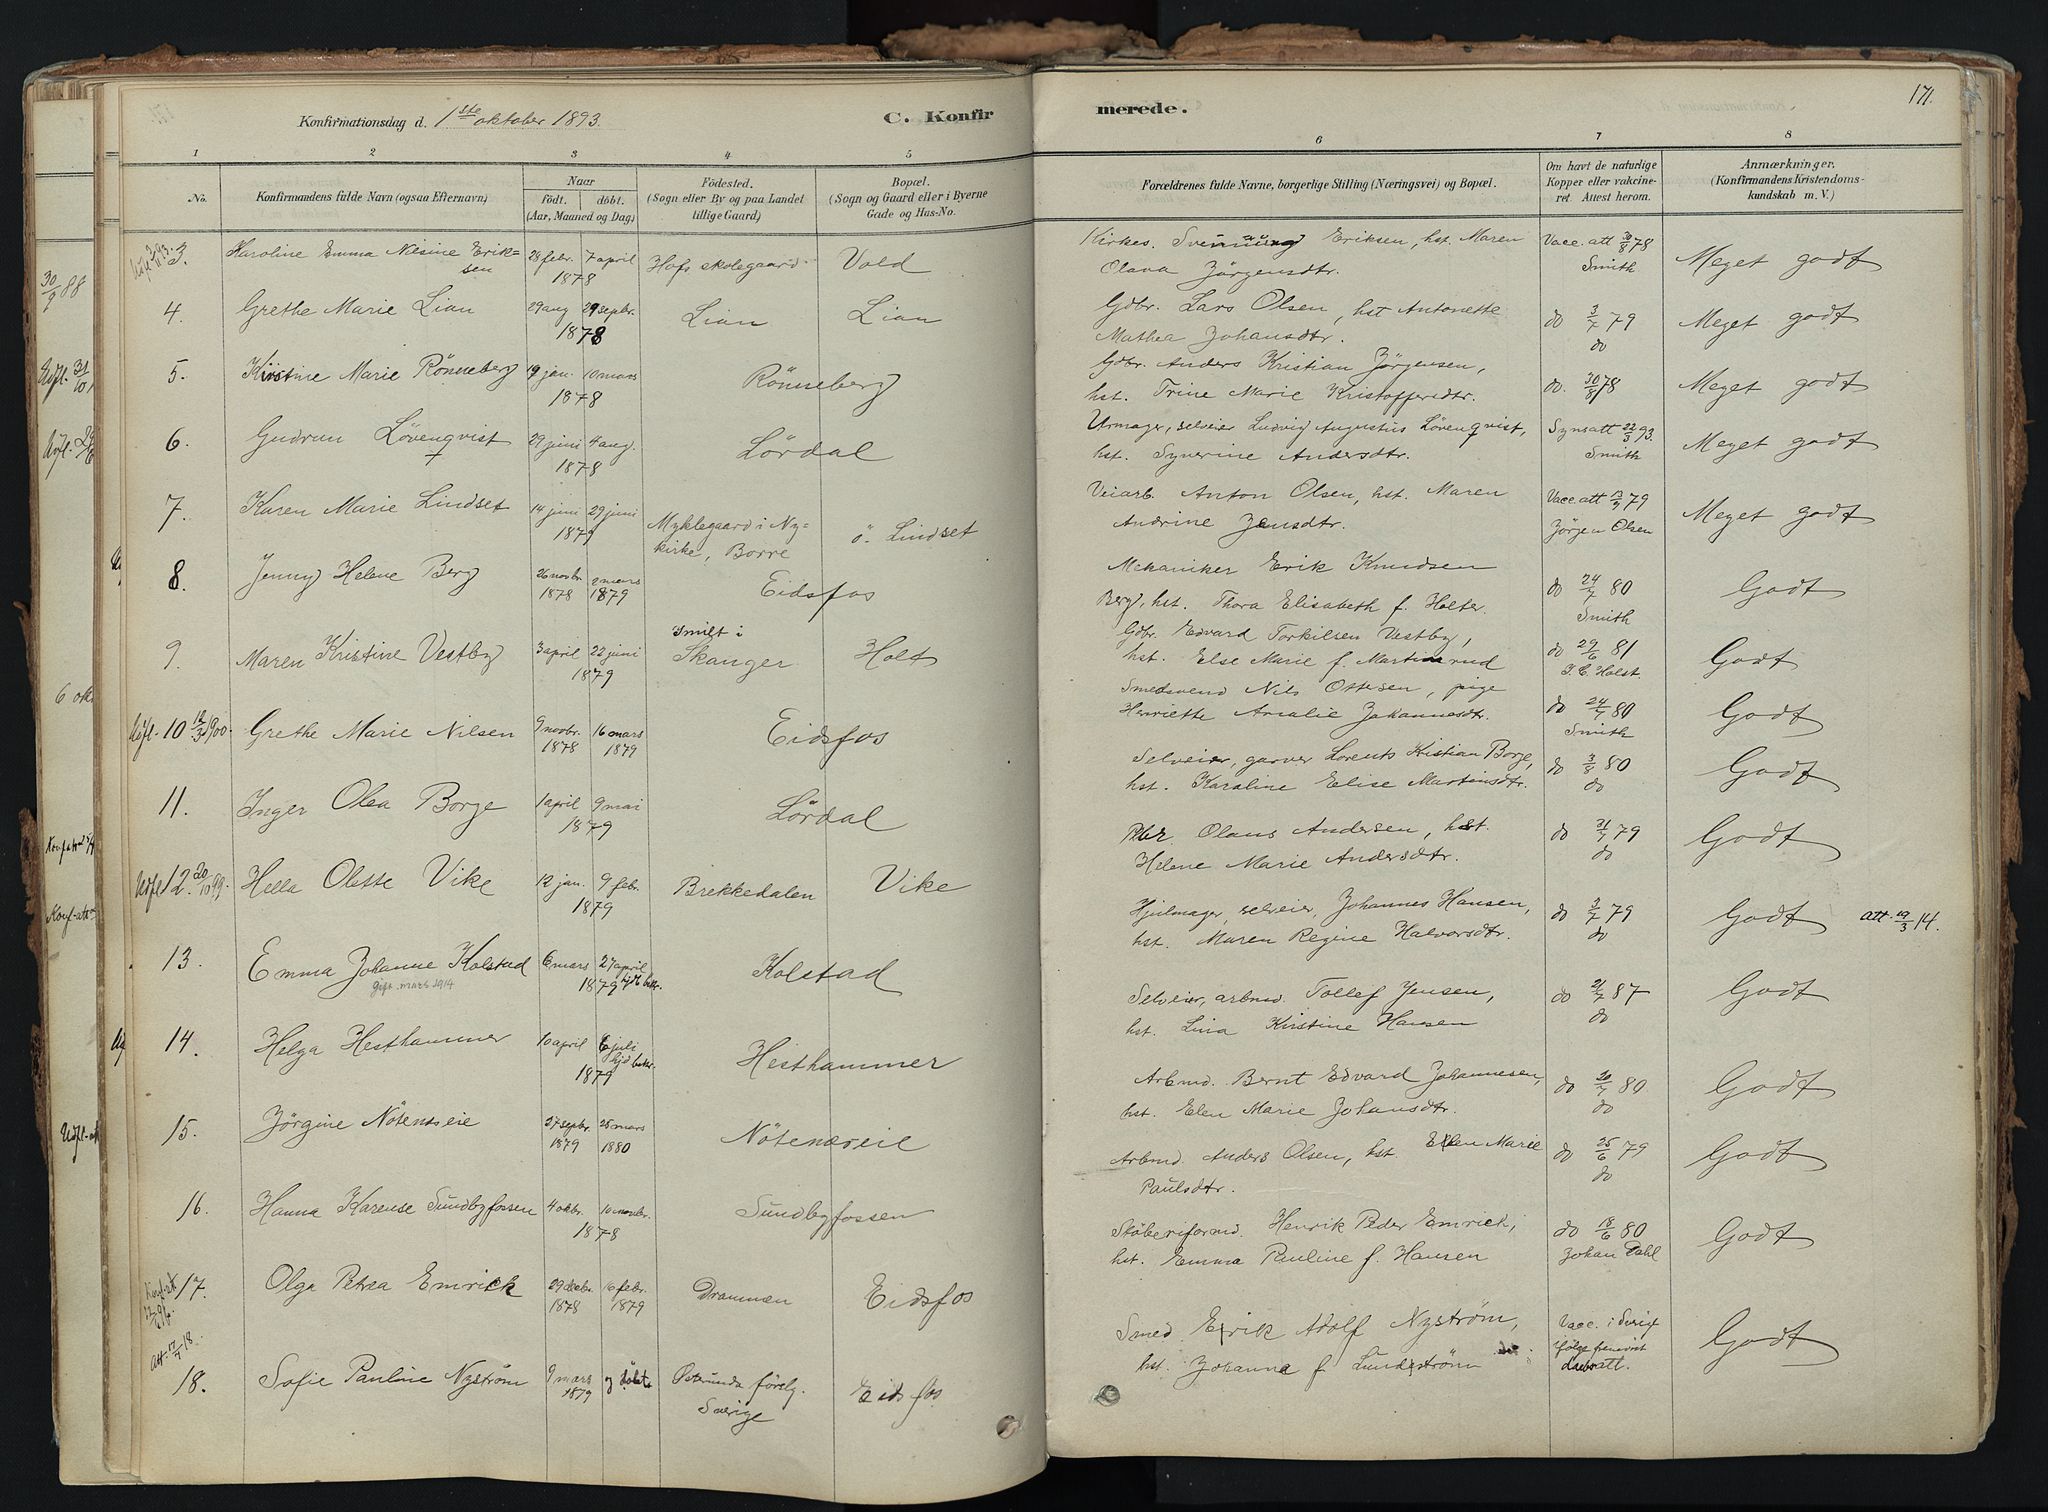 Konfirmationsdag d. 1ste oktober 1893.
C. Konfirmerede.
171.
1 2 3 4 5 6 7 8
No.
Konfirmandens fulde Navn (ogsaa Efternavn)
Naar
født. döbt.
(Aar, Maaned og Dag)
Födested.
(Sogn eller By og paa Landet
tillige Gaard)
Bopæl.
(Sogn og Gaard eller i Byerne
Gade og Hus-No.
Forældrenes fulde Navne, borgerlige Stilling (Næringsvei) og Bopæl.
Om havt de naturlige
Kopper eller vakcine-
ret. Attest herom.
Anmærkninger.
(Konfirmandens Kristendoms-
kundskab m. V.)
3. Karoline Emma Nisine Erik-
sen 28 febr. 7 april 1878 Hofs skolegaard Vold
Kirkes. Svennung Eriksen, hst. Maren
Olava Jörgensdtr. Vacc. att 30/8 78 Smith Meget godt
4. Grethe Marie Lian 29 aug 29 sepbr. 1878 Lian Lian
Gdbr. Lars Olsen, hst Antonette
Mathea Johansdtr. do 3/7 79 do Meget godt
5. Kristine Marie Rönneberg 19 jan. 10 mars 1878 Rönneberg
Gdbr. Anders Kristian Jörgensen,
hst. Trine Marie Kristoffersdtr. do. 30/8 78 Meget godt
6. Gudrun Lövenqvist 29 juni 4 aug. 1878 Lördal
Urmager, selveier Ludvig Augustus Lövenqvist,
hst. Syverine Andersdtr. Synsatt 22/3 93. Smith Meget godt
7. Karen Marie Lindset 14 juni 29 juni 1879 Myklegaard i Ny-
kirke, Borre ö. Lindset
Veiarb. Anton Olsen, hst. Maren
Andrine Jensdtr. Vacc. att 13/9 79 Jörgen Olsen Meget godt
8. Jenny Helene Berg 26 novbr. 1878 2 mars 1879 Eidsfos
Mekaniker Erik Knudsen
Berg, hst. Thora Elisabeth f. Holter. do 24/7 80 Smith Godt
9. Maren Kristine Vestby 3 april 22 juni 1879 Smilt i
Skanger Holt
Gdbr. Edvard Torkilsen Vestby,
hst. Else Marie f. Martinsrud do 29/6 81 Holst. Godt
Udfl. 10 12/3 1900. Grethe Marie Nilsen 9 novbr. 1878 16 mars 1879 Eidsfos
Smedsvend Nils Ottesen, pige
Henriette Amalie Johannesdtr. do 24/7 80 Smith Godt
11. Inger Olea Borge 1 april 9 mai 1879 Lördal
Selveier, garver Lorents Kristian Borge,
hst. Karoline Elise Martinsdtr. do 3/8 80 do Godt
Udfl 12. 20/10 99. Hella Olette Vike 12 jan. 9 febr. 1879 Brekkedalen Vike
Olaus Andersen, hst.
Helene Marie Andersdtr. do 31/7 79 do Godt
13. Emma Johanne Kolstad 6 mars 27 april 1879 hjdt bekr. Kolstad
Gift. mars 1914
Hjulmager, selveier, Johannes Hansen,
hst. Maren Regine Halvorsdtr. do 3/7 79 do Godt Att. 19/3 14.
14. Helga Hesthammer 10 april 6 juli 1879 hjd bekr. Hesthammer
Selveier, arbmd. Tollef Jensen,
hst. Lina Kristine Hansen do 21/7 87 do Godt
15. Jörgine Nötensseie 27 sepbr. 1879 28 mars 1880 Nötenæseie
Arbmd. Bernt Edvard Johannesen,
hst. Elen Marie Johansdtr. do 20/7 80 do Godt
16. Hanna Karense Sundbyfossen 4 okbr. 10 novbr. 1878 Sundbyfossen
Arbmd. Anders Olsen, hst. Ellen Marie
Paulsdtr. do 25/6 79 do Godt
17. Olga Petrea Emrick 29 decbr. 1878 16 febr. 1879 Drammen Eidsfos
Stöberiformd. Henrik Peder Emrick,
hst. Emma Pauline f. Hansen do 18/6 80 Johan Dahl Godt
Att. 17/4 18.
18. Sofie Pauline Nyström 9 mars 1879 og döbt Östersunda förelg.
Sverige Eidsfos
Smed Erik Adolf Nyström,
hst. Johanna f. Lundström Vacc. i Sverige
ifölge
att. Godt
30/9 88
Udfl. 31/10
Udfl.
6 okt
Konf.att.
Udfl.